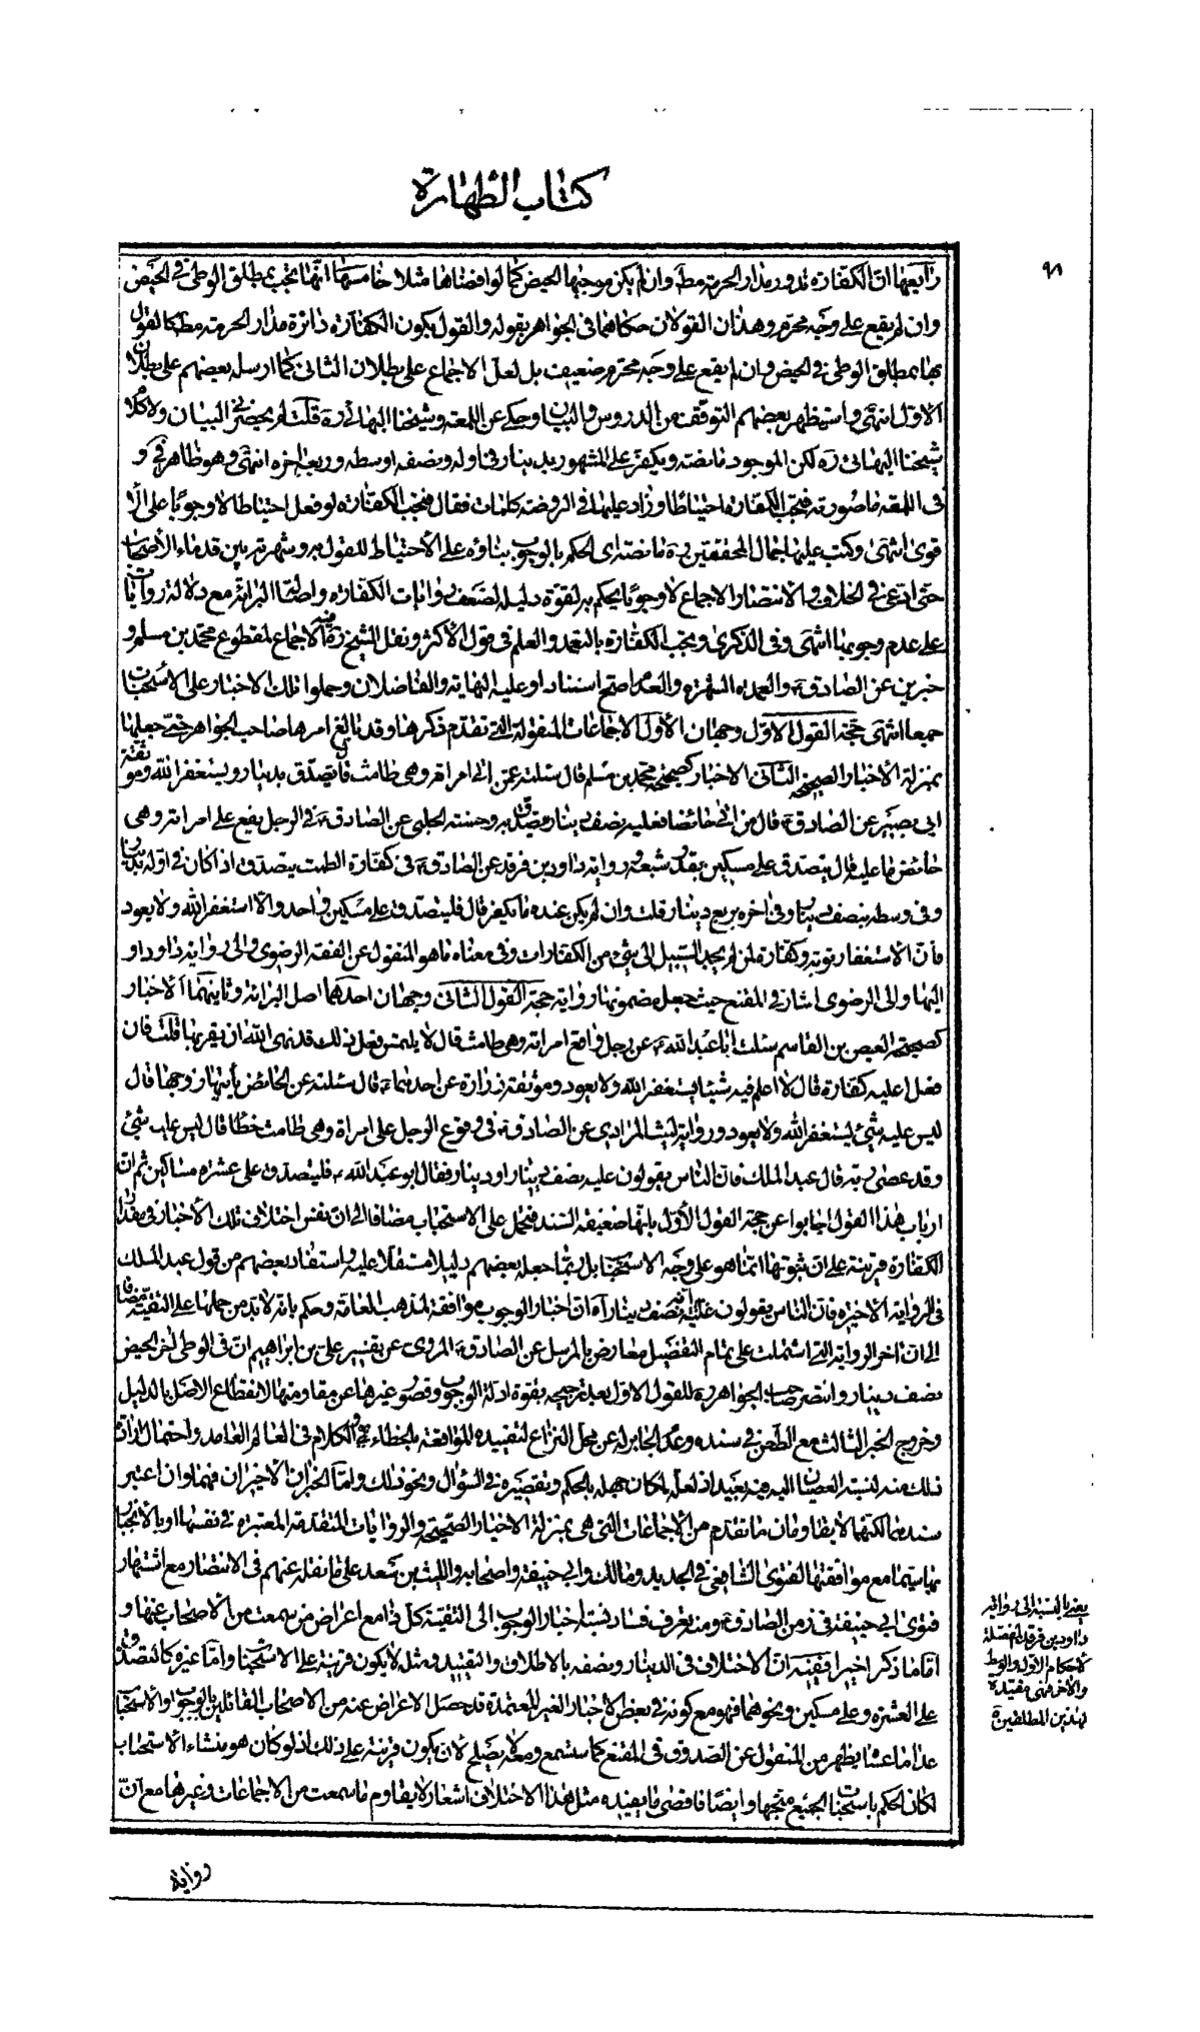 كتاب الطهارة
٩٨
رابعها ان الكفارة تدور مدار الحرمة مط وان لم يكن موجبها الحيض كما لو افضاها مثلا خامسها انها تجب بمطلق الوطى فى الحيض
وان لم يقع على وجه محرم وهذان القولان حكاهما فى الجواهر بقوله والقول بكون الكفارة دائرة مدار الحرمة مط كالقول
بها بمطلق الوطى فى الحيض وان لم يقع على وجه محرم ضعيف بل لعل الاجماع على بطلان الثانى كما ارسله بعضهم على بطلان
الاول انتهى واستظهر بعضهم التوقف من الدروس والبيان وحكى عن اللمعة وشيخنا البهائى ره قلت لم يحضرنى البيان ولا كلام
شيخنا البهائى ره لكن الموجود ما نصه ويكفر على المشهور بدينار فى اوله ونصفه اوسطه وربعه اخره انتهى وهو ظاهر فى و
فى اللمعة ما صورته فتجب الكفارة احتياطا وزاد عليها فى الروضة كلمات فقال فتجب الكفارة لو فعل احتياطا لا وجوبا على الا
قوى انتهى وكتب عليها جمال المحققين ره ما نصه اى الحكم بالوجوب بناؤه على الاحتياط للقول به وشهرته بين قدماء الاصحاب
حتى ادعى فى الخلاف والانتصار الاجماع لا وجوبا يحكم به لقوة دليله لضعف روايات الكفارة واصالة البرائة مع دلالة روايات
على عدم وجوبها انتهى وفى الذكرى وتجب الكفارة بالتعمد والعلم فى قول الاكثر ونقل الشيخ ره فيه الاجماع لمقطوع محمد بن مسلم و
خبرين عن الصادق ع والعمدة الشهرة والعدم اصح اسنادا وعليه النهاية والفاضلان وحملوا تلك الاخبار على الاستحباب
جمعا انتهى حجة القول الاول وجهان الاول الاجماعات المنقولة التى تقدم ذكرها وقد بالغ فى امرها صاحب الجواهر حتى جعلها
بمنزلة الاخبار الصحيحة الثانى الاخبار كصحيحة محمد بن مسلم قال سئلته عمن اتى امراته وهى طامث قال يتصدق بدينار ويستغفر الله وموثقة
ابى بصير عن الصادق ع قال من اتى حائضا فعليه نصف دينار يتصدق به وحسنة الحلبى عن الصادق ع فى الرجل يقع على امراته وهى
حائض ما عليه قال يتصدق على مسكين بقدر شبعه ورواية داود بن فرقد عن الصادق ع فى كفارة الطمث يتصدق اذا كان فى اوله بدينار
وفى وسطه بنصف دينار وفى اخره بربع دينار قلت وان لم يكن عنده ما يكفر قال فليتصدق على مسكين واحد والا استغفر الله ولا يعود
فان الاستغفار توبة وكفارة لمن لم يجد السبيل الى شئ من الكفارات وفى معناه ما هو المنقول عن الفقه الرضوى والى رواية داود او
اليها والى الرضوى اشار فى المقنع حيث جعل مضمونها رواية حجة القول الثانى وجهان احدهما اصل البرائة وثانيهما الاخبار
كصحيحة العيص بن القاسم سئلت ابا عبد الله ع عن رجل واقع امراته وهى طامث قال لا يلتمس فعل ذلك قد نهى الله ان يقربها قلت فان
فعل اعليه كفارة قال لا اعلم فيه شيئا يستغفر الله ولا يعود وموثقة زرارة عن احدهما ع قال سئلته عن الحائض ياتيها زوجها قال
ليس عليه شئ يستغفر الله ولا يعود ورواية ليث المرادى عن الصادق ع فى وقوع الرجل على امراة وهى طامث خطأ قال ليس عليه شئ
وقد عصى ربه قال عبد الملك فان الناس يقولون عليه نصف دينار او دينار فقال ابو عبد الله ع فليتصدق على عشرة مساكين ثم ان
ارباب هذا القول اجابوا عن حجة القول الاول بانها ضعيفة السند فتحمل على الاستحباب مضافا الى ان نفس اختلاف تلك الاخبار فى مقدار
الكفارة قرينة على ان ثبوتها انما هو على وجه الاستحباب بل ربما جعله بعضهم دليلا مستقلا عليه واستفاد بعضهم من قول عبد الملك
فى الرواية الاخيرة فان الناس يقولون عليه نصف دينار اه ان اخبار الوجوب موافقة لمذهب العامة وحكم بانه لابد من حملها على التقية مضافا
الى ان اخر الرواية التى اشتملت على تمام التفصيل معارض بالمرسل عن الصادق ع المروى عن تفسير على بن ابراهيم ان فى الوطى اخر الحيض
نصف دينار وانتصر صاحب الجواهر ره للقول الاول بعد ترجيحه بقوة ادلة الوجوب وقصور غيرها عن مقاومتها لانقطاع الاصل بالدليل
وخروج الخبر الثالث مع الطعن فى سنده وعدم الجابر له عن محل النزاع لتقييده المواقعة بالخطاء والكلام فى العالم العامد واحتمال ارادة
ذلك منه لنسبة العصيان اليه فيه بعيد اذ لعله لمكان جهله بالحكم وتقصيره فى السؤال ونحو ذلك واما الخبران الاخيران فهما وان اعتبر
سندهما لكنهما لا يقاومان ما تقدم من الاجماعات التى هى بمنزلة الاخبار الصحيحة والروايات المتقدمة المعتبرة فى نفسها او بالانجبار
بها سيما مع موافقتها لفتوى الشافعى فى الجديد ومالك وابى حنيفة واصحابه والليث بن سعد على ما نقله عنهم فى الانتصار مع اشتهار
فتوى ابى حنيفة فى زمن الصادق ع ومنه يعرف فساد نسبة اخبار الوجوب الى التقية كل ذا مع اعراض من سمعت من الاصحاب عنها و
اما ما ذكر اخيرا ففيه ان الاختلاف فى الدينار ونصفه بالاطلاق والتقييد ومثله لا يكون قرينة على الاستحباب واما غيره كالتصدق
على العشرة وعلى مسكين ونحوهما فهو مع كونه فى بعض الاخبار الغير المعتمدة قد حصل الاعراض عنه من الاصحاب القائلين بالوجوب والاستحباب
عدا ما عساه يظهر من المنقول عن الصدوق فى المقنع كما ستسمع ومعه لا يصلح لان يكون قرينة على ذلك اذ لو كان هو منشاء الاستحباب
لكان الحكم باستحباب الجميع متجها وايضا فاقصى ما يفيده مثل هذا الاختلاف اشعار لا يقاوم ما سمعت من الاجماعات وغيرها مع ان
يعنى بالنسبة الى رواية
داود بن فرقد المفصلة
لاحكام الاول والوسط
والاخر فهى مقيدة
لهذين المطلقين
رواية